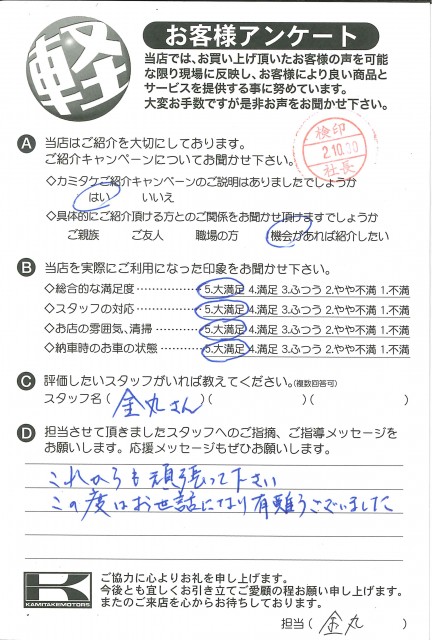 軽
お客様アンケート
当店では、お買い上げ頂いたお客様の声を可能
な限り現場に反映し、お客様により良い商品と
サービスを提供する事に努めています。
大変お手数ですが是非お声をお聞かせ下さい。
A 当店はご紹介を大切にしております。
ご紹介キャンペーンについてお聞かせ下さい。
検印
2.10.
社長
◇カミタケご紹介キャンペーンのご説明はありましたでしょうか
はい いいえ
◇具体的にご紹介頂ける方とのご関係をお聞かせ頂けますでしょうか
ご親族 ご友人 職場の方 機会があれば紹介したい
B 当店を実際にご利用になった印象をお聞かせ下さい。
◇総合的な満足度 ………………… 5.大満足 4.満足 3.ふつう 2.やや不満 1.不満
◇スタッフの対応 ………………… 5.大満足 4.満足 3.ふつう 2.やや不満 1.不満
◇お店の雰囲気、清掃 …………… 5.大満足 4.満足 3.ふつう 2.やや不満 1.不満
◇納車時のお車の状態 …………… 5.大満足 4.満足 3.ふつう 2.やや不満 1.不満
C 評価したいスタッフがいれば教えてください。(複数回答可)
スタッフ名 ( 金丸さん )( )( )
D 担当させて頂きましたスタッフへのご指摘、ご指導メッセージを
お願いします。応援メッセージもぜひお願いします。
これからも頑張って下さい
この度はお世話になり有難うございました
K
KAMITAKE MOTORS
ご協力に心よりお礼を申し上げます。
今後とも宜しくお引き立てご愛顧の程お願い申し上げます。
またのご来店を心からお待ちしております。
担当 ( 金丸 )